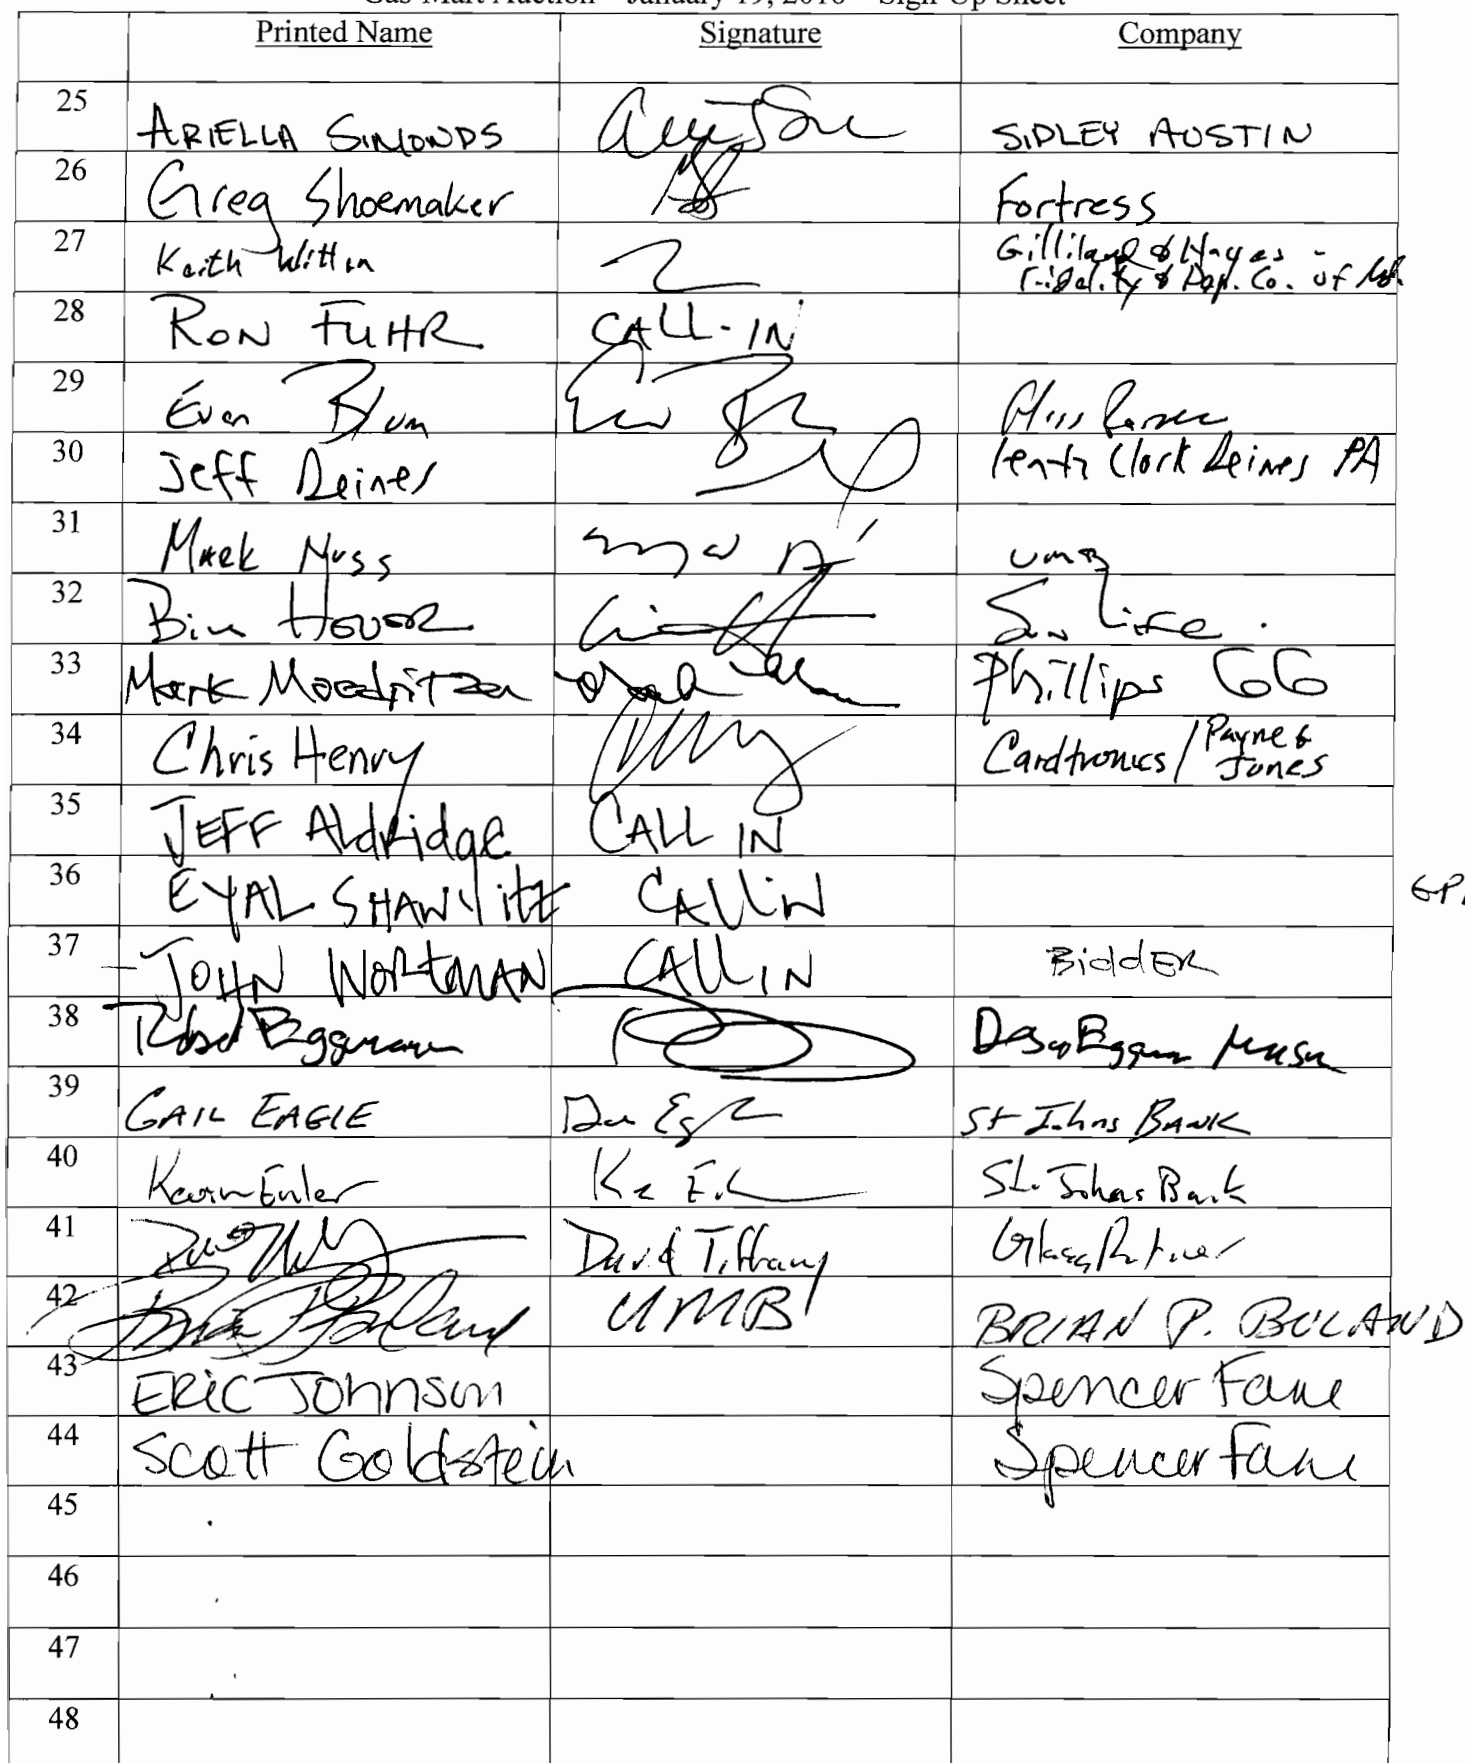 Gas-Mart Auction – January 19, 2016 – Sign-Up Sheet
Printed Name Signature Company
25 ARIELLA SIMONDS SIDLEY AUSTIN
26 Greg Shoemaker Fortress
27 Keith Witten Gilliland & Hayes -
Fidelity & Dep. Co. of Md.
28 RON FUHR CALL-IN
29 Evan Blum
30 Jeff Deines Lentz Clark Deines PA
31 Mark Nuss UMB
32 Bill HOVER Sun Life
33 Mark Moedritzer Phillips 66
34 Chris Henry Cardtronics / Payne &
Jones
35 JEFF Aldridge CALL IN
36 EYAL SHAWVitz CALLiN
37 JOHN WORTMAN CALL IN BiddER
38 Eggmann Desai Eggmann Mason
39 GAIL EAGLE St Johns BANK
40 Kevin Euler St. Johns Bank
41 David Tiffany Glass Ratner
42 UMB BRIAN P. BOLAND
43 ERiC JOHNSON Spencer Fane
44 Scott Goldstein Spencer Fane
45
46
47
48